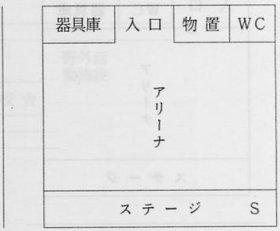 器具庫 入口 物置 WC
アリーナ
ステージ S